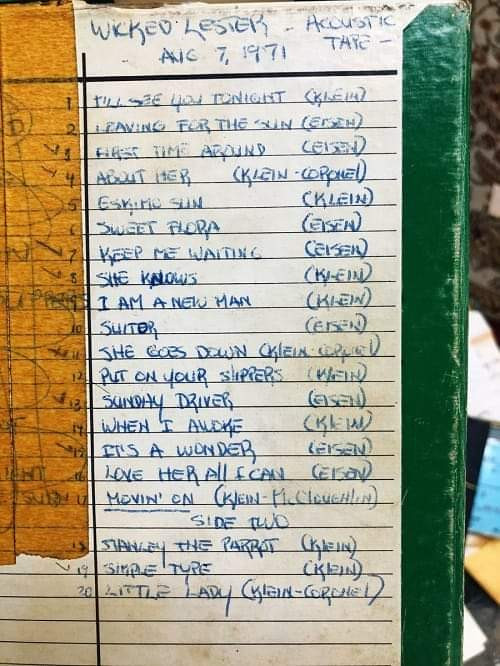 WICKED LESTER - ACOUSTIC
TAPE -
AUG 7, 1971
1 I'LL SEE YOU TONIGHT (KLEIN)
2 LEAVING FOR THE SUN (EISEN)
3 FIRST TIME AROUND (EISEN)
4 ABOUT HER (KLEIN-CORONEL)
5 ESKIMO SUN (KLEIN)
6 SWEET FLORA (EISEN)
7 KEEP ME WAITING (EISEN)
8 SHE KNOWS (KLEIN)
9 I AM A NEW MAN (KLEIN)
10 SUITOR (EISEN)
11 SHE GOES DOWN (KLEIN-CORONEL)
12 PUT ON YOUR SLIPPERS (KLEIN)
13 SUNDAY DRIVER (EISEN)
14 WHEN I AWOKE (KLEIN)
15 IT'S A WONDER (EISEN)
16 LOVE HER All I CAN (EISEN)
17 MOVIN' ON (KLEIN-McCLOUGHLIN)
SIDE TWO
18 STANLEY THE PARROT (KLEIN)
19 SIMPLE TYPE (KLEIN)
20 LITTLE LADY (KLEIN-CORONEL)